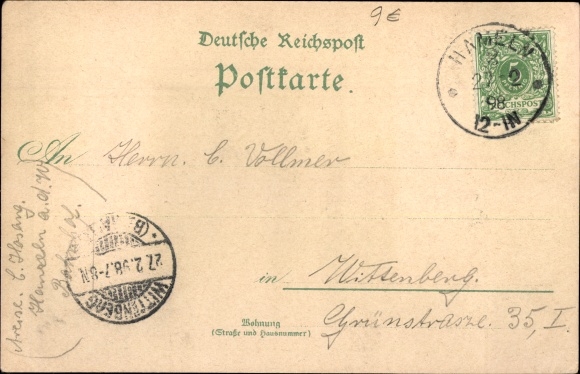 9 €
Deutsche Reichspost
Postkarte.
HAMELN
2
98
12-1N
5
REICHSPOST
An Herrn C. Vollmer
in Wittenberg.
Grünstrasze 35, I.
Wohnung
(Straße und Hausnummer)
WITTENBERG
27.2.98.7-8N
(B
C. Hosang.
Hameln a. d. W.